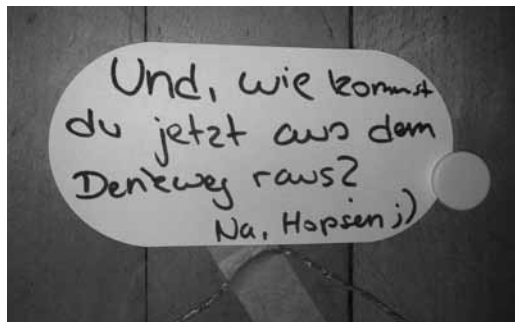 Und, wie kommst
du jetzt aus dem
Denkweg raus?
Na, Hopsen ;)